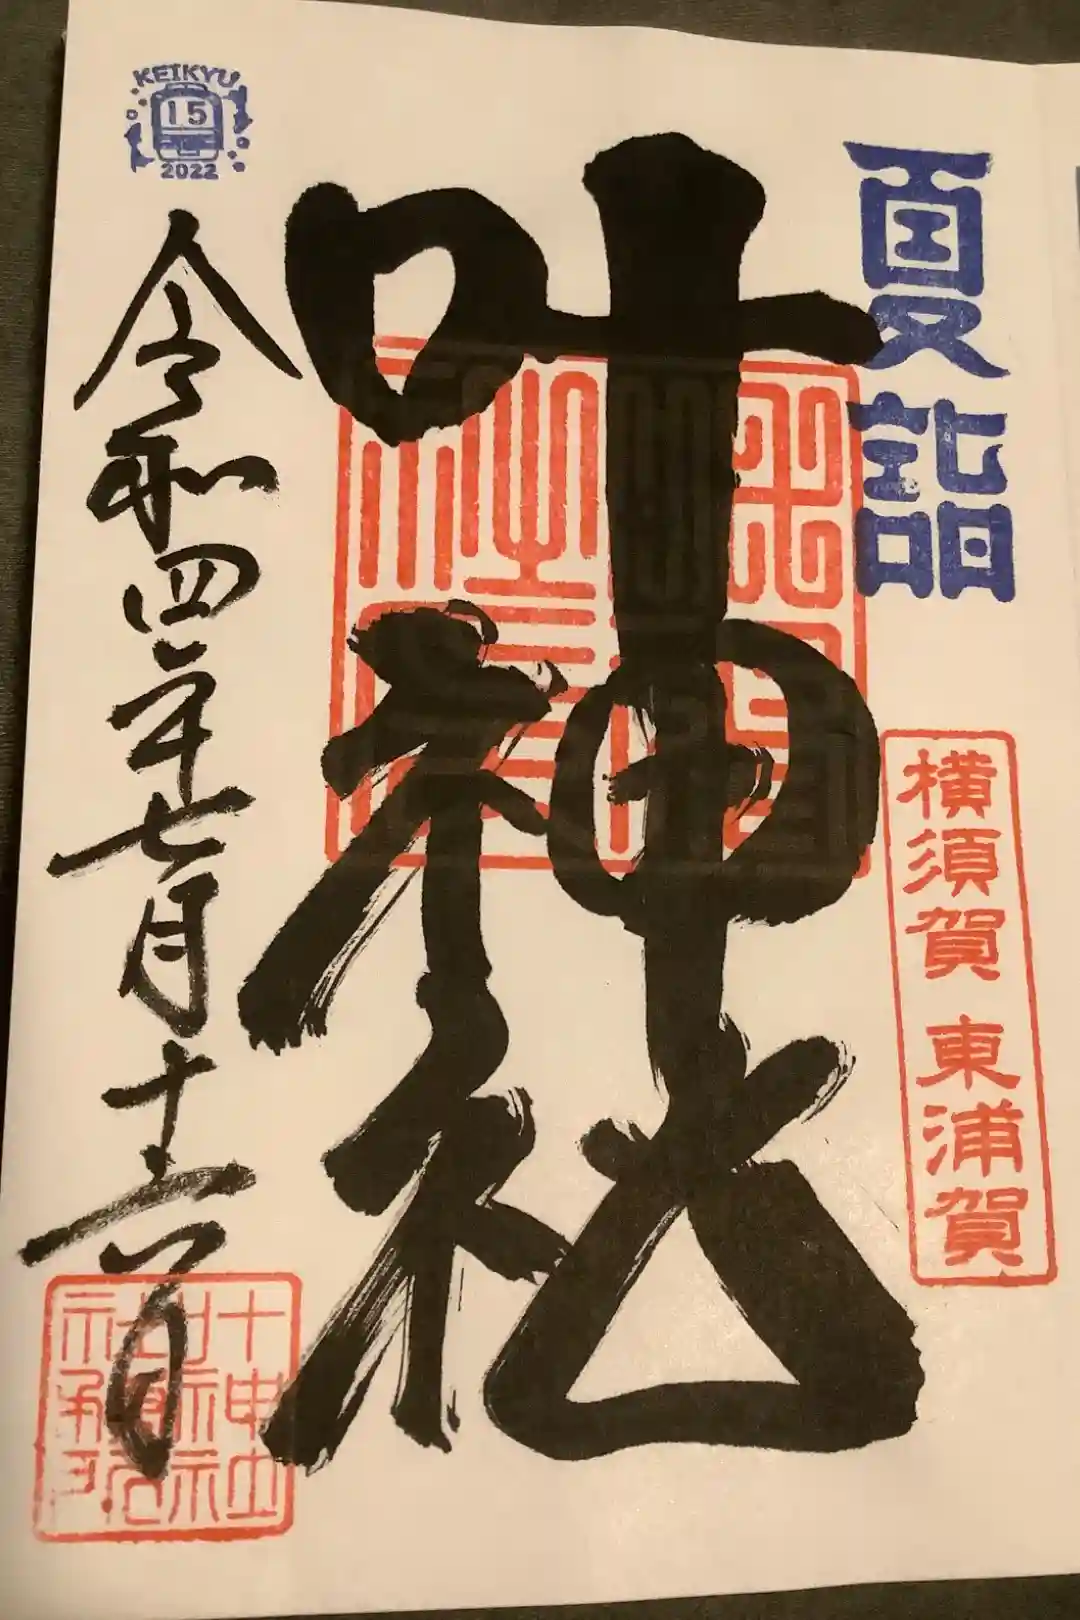 夏詣
横須賀 東浦賀
叶神社
令和四年七月十六日
KEIKYU
15
2022